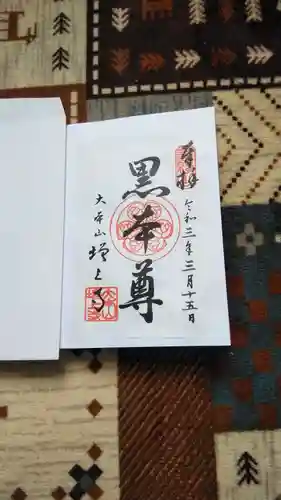 奉拝
令和三年三月十五日
黒本尊
大本山増上寺